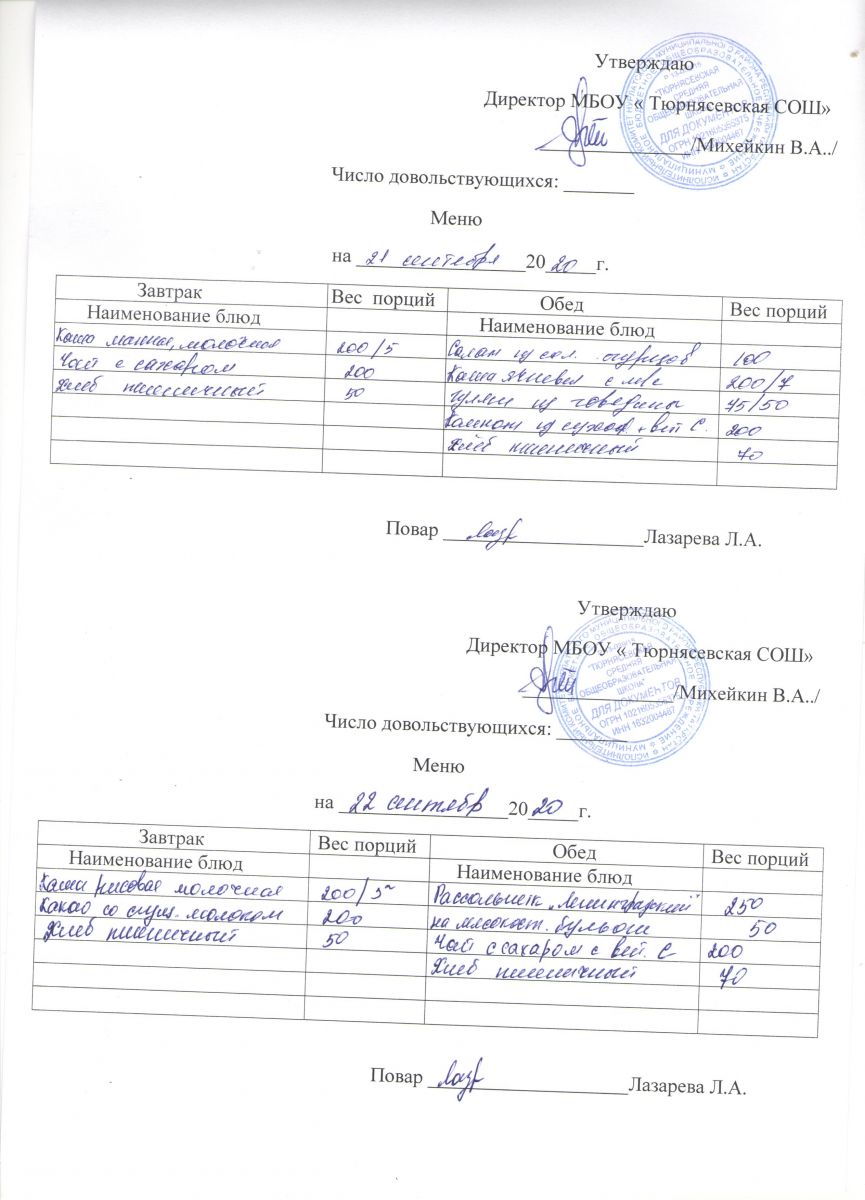 Утверждаю
Директор МБОУ « Тюрнясевская СОШ»
/Михейкин В.А../
ИСПОЛНИТЕЛЬНЫЙ КОМИТЕТ
"ТЮРНЯСЕВСКАЯ
СРЕДНЯЯ
ОБЩЕОБРАЗОВАТЕЛЬНАЯ
ДЛЯ ДОКУМЕНТОВ
Число довольствующихся:
Меню
на 21 сентября 2020 г.
Завтрак Вес порций Обед Вес порций
Наименование блюд Наименование блюд
Каша манная, молочная 200/5 Салат из сол. огурцов 100
Чай с сахаром 200 Каша ячневая с м/с 200/7
Хлеб пшеничный 50 Гуляш из говядины 75/50
Компот из сухоф + вит С. 200
Хлеб пшеничный 70
Повар Лазарева Л.А.
Утверждаю
Директор МБОУ « Тюрнясевская СОШ»
/Михейкин В.А../
"ТЮРНЯСЕВСКАЯ
СРЕДНЯЯ
ОБЩЕОБРАЗОВАТЕЛЬНАЯ
ШКОЛА"
ДЛЯ ДОКУМЕНТОВ
ИНН 1632004467
Число довольствующихся:
Меню
на 22 сентябр 2020 г.
Завтрак Вес порций Обед Вес порций
Наименование блюд Наименование блюд
Каша рисовая молочная 200/5 Рассольник „Ленинградский" 250
Какао со сгущ. молоком 200 на мясокост. бульоне 50
Хлеб пшеничный 50 Чай с сахаром с вит. С 200
Хлеб пшеничный 70
Повар Лазарева Л.А.